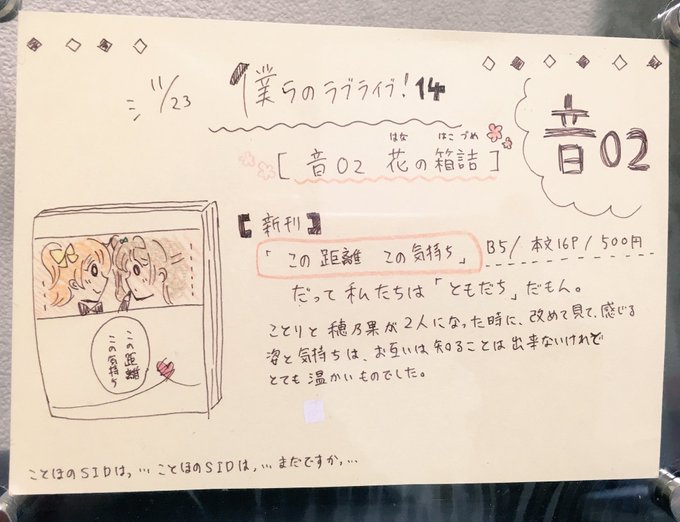 11/23
僕らのラブライブ!14
音02
はな はこづめ
[音02 花の箱詰]
【新刊】
「この距離 この気持ち」 B5/本文16P/500円
だって私たちは「ともだち」だもん。
ことりと穂乃果が2人になった時に、改めて見て、感じる
姿と気持ちは、お互いは知ることは出来ないけれど
とても温かいものでした。
この距離
この気持ち
ことほのSIDは,…ことほのSIDは,…まだですか,…